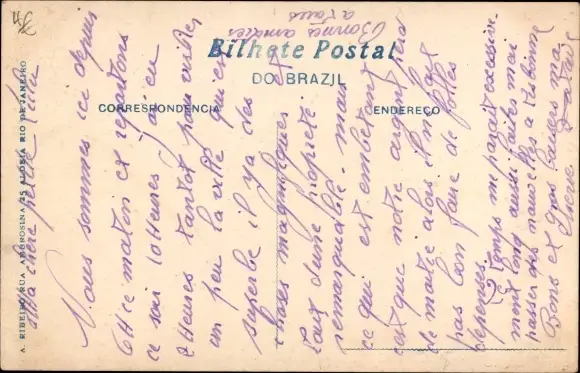 Bilhete Postal
DO BRAZIL
CORRESPONDENCIA
ENDEREÇO
A. RIBEIRO RUA AMBROSINA 25 ALDEIA RIO DE JANEIRO
Ma chère petite
Nous sommes ici depuis
cette matin et repartons
ce soir 10 heures j'ai eu
2 heures tantot pour visiter
un peu la ville qui est
superbe il y a des
choses magnifiques et
tout d'une propreté
remarquable. mais
ce qui est embêtant
c'est que notre argent
de matie alors il ne faut
pas bon faire de folles
dépenses.
Le temps me parait excessive
ment long aussi faites moi
passer des nouvelles a Lisbonne
Bons et gros baisers ma
Bonnes amitiés
a tous